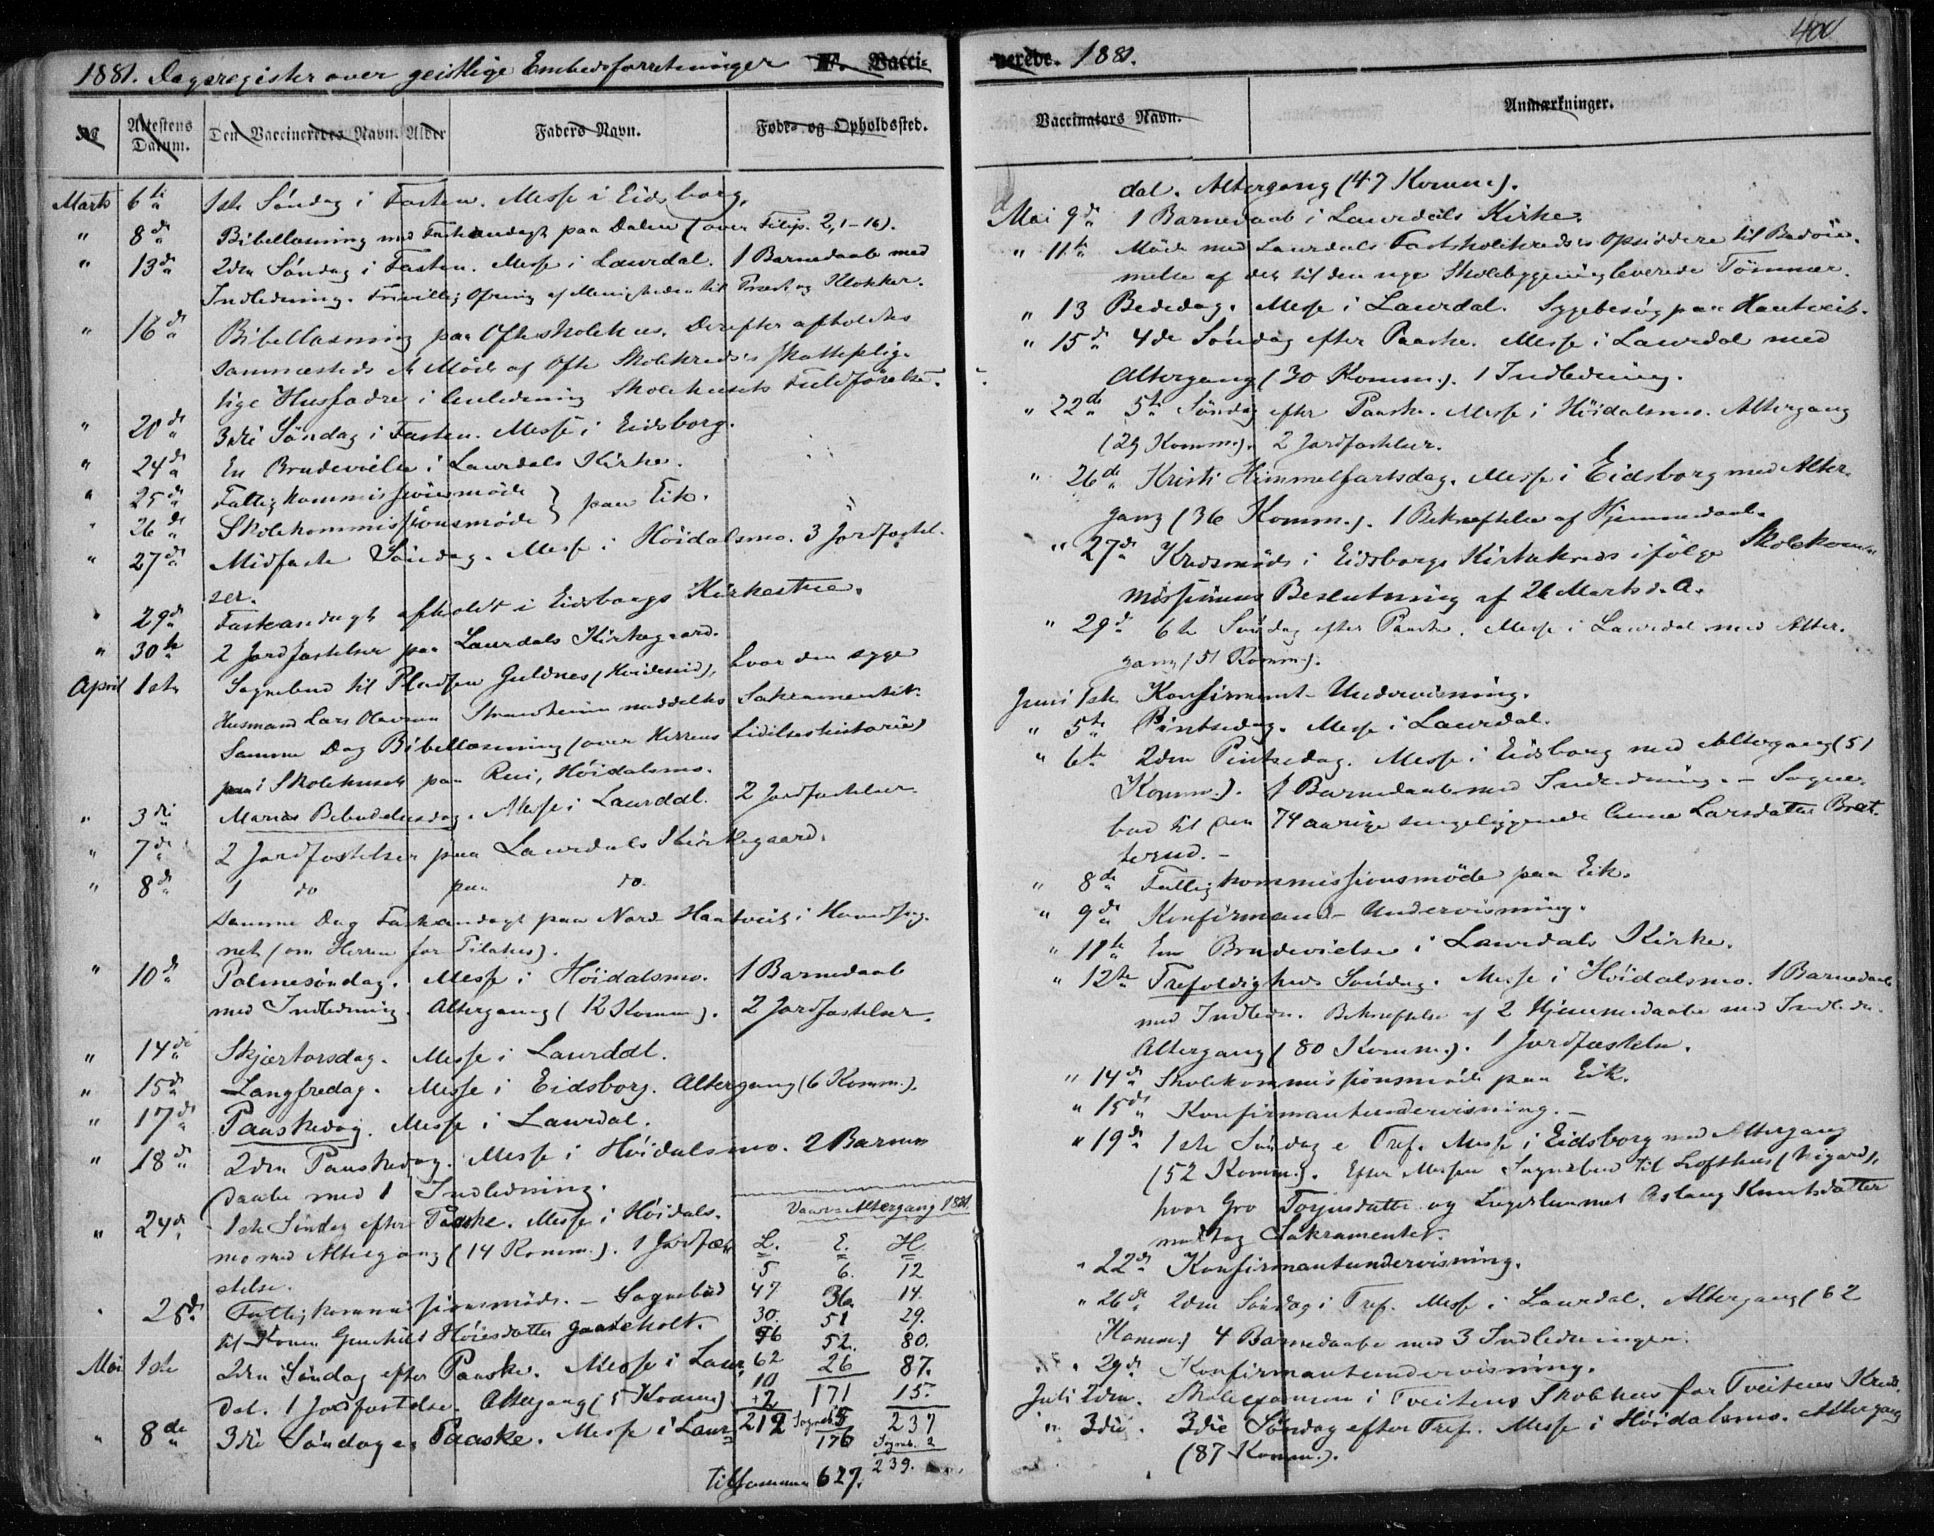 1881. Dagsregister over geistlige Embedsforretninger F. Vacci-
No
Attestens Datum.
Den Vaccineredes Navn.
Alder
Faders Navn.
Føde- og Opholdssted.
Marts 6te 1ste Søndag i Fasten. Messe i Eidsborg.
" 8de Bibellæsning med Fasteandagt paa Dalen (over Filip. 2,1-16).
" 13de 2den Søndag i Fasten. Messe i Laurdal. 1 Barnedaab med
Indledning. Frivillig Ofring af Menigheden til Præst og Klokker.
" 16de Bibellæsning paa Ofte Skolehus. Derefter afholdtes
sammesteds et Møde af Ofte Skolekreds's skatteplig-
tige Husfædre i Anledning Skolehusets Fuldførelse.
" 20de 3die Søndag i Fasten. Messe i Eidsborg.
" 24de En Brudevielse i Laurdals Kirke.
" 25de Fattigkommissionsmøde } paa Eik.
" 26de Skolekommissionsmøde
" 27de Midfaste Søndag. Messe i Høidalsmo. 3 Jordfæstel-
ser.
" 29de Fasteandagt afholdt i Eidsborgs Kirkestue.
" 30te 2 Jordfæstelser paa Laurdals Kirkegaard.
April 1ste Sognebud til Pladsen Guldnes (Hvideseid), hvor den syge
Husmand Lars Olavsen Strandheim meddeltes Sakramentet.
Samme Dag Bibellæsning (over Herrens Lidelseshistorie)
paa i Skolehuset paa Rui, Høidalsmo.
" 3die Mariæ Bebudelsesdag. Messe i Laurdal. 2 Jordfæstelser
" 7de 2 Jordfæstelser paa Laurdals Kirkegaard.
" 8de 1 do paa do.
Samme Dag Fasteandagt paa Nord Hautveit i Hovedsog-
net (om Herren for Pilatus).
" 10de Palmesøndag. Messe i Høidalsmo. 1 Barnedaab
med Indledning. Altergang (12 Komm). 2 Jordfæstelser.
" 14de Skjærtorsdag. Messe i Laurdal.
" 15de Langfredag. Messe i Eidsborg. Altergang (6 Komm.).
" 17de Paaskedag. Messe i Laurdal.
" 18de 2den Paaskedag. Messe i Høidalsmo. 2 Barne-
daabe med 1 Indledning.
" 24de 1ste Søndag efter Paaske. Messe i Høidals-
mo med Altergang (14 Komm.). 1 Jordfæ-
stelse.
" 25de Fattigkommissionsmøde. - Sognebud
til Konen Gunhild Høiesdatter Gaaseholt.
Mai 1ste 2den Søndag efter Paaske. Messe i Laur-
dal. 1 Jordfæstelse. Altergang (5 Komm)
" 8de 3die Søndag e. Paaske. Messe i Laur-
Vaar-Altergang 1881.
L. E. H.
5 6. 12
47 36. 14.
30. 51 29.
56 52. 80.
62 26 87.
10 171 15.
+2 5 237
212 Sogneb. 176 Sogneb. 2
239.
Tilsammen 627.
400
nerede. 1881.
Vaccinators Navn.
Anmærkninger.
dal. Altergang (47 Komm.).
Mai 9de 1 Barnedaab i Laurdals Kirke.
" 11te Møde med Laurdals Fastskolekreds's Opsiddere til Bedøm-
melse af det til den nye Skolebygning leverede Tømmer.
" 13 Bededag. Messe i Laurdal. Sygebesøg paa Hautveit.
" 15de 4de Søndag efter Paaske. Messe i Laurdal med
Altergang (30 Komm.). 1 Indledning.
" 22de 5te Søndag efter Paaske. Messe i Høidalsmo. Altergang
(29 Komm.). 2 Jordfæstelser.
" 26de Kristi Himmelfartsdag. Messe i Eidsborg med Alter-
gang (36 Komm.). 1 Bekræftelse af Hjemmedaab.
" 27de Kredsmøde i Eidsborgs Kirkekreds ifølge Skolekom-
missionens Beslutning af 26 Marts d. A.
" 29de 6te Søndag efter Paaske. Messe i Laurdal med Alter-
gang (51 Komm.).
Juni 1ste Konfirmant-Undervisning.
" 5te Pintsedag. Messe i Laurdal.
" 6te 2den Pintsedag. Messe i Eidsborg med Altergang (51
Komm.). 1 Barnedaab med Indledning. - Sogne-
bud til den 74 aarige sengeliggende Anne Larsdatter Brat-
terud. -
" 8de Fattigkommissionsmøde paa Eik.
" 9de Konfirmant-Undervisning.
" 11te En Brudevielse i Laurdals Kirke.
" 12te Trefoldigheds Søndag. Messe i Høidalsmo. 1 Barnedaab
med Indledn. Bekræftelse af 2 Hjemmedaabe med Indledn.
Altergang (80 Komm.). 1 Jordfæstelse.
" 14de Skolekommissionsmøde paa Eik.
" 15de Konfirmantundervisning. -
" 19de 1ste Søndag e Tref. Messe i Eidsborg med Altergang
(52 Komm.). Efter Messen Sognebud til Lofthus (Nigard),
hvor Gro Torjusdatter og Aslaug Knutsdatter
modtog Sakramentet.
" 22de Konfirmantundervisning.
" 26de 2den Søndag i Tref. Messe i Laurdal. Altergang (62
Komm.) 4 Barnedaabe med 3 Indledninger.
" 29de Konfirmantundervisning.
Juli 2den. Skoleexamen i Tveitens Skolehus for Tveitens Kreds.
" 3die. 3die Søndag efter Tref. Messe i Høidalsmo. Altergang
(87 Komm.).